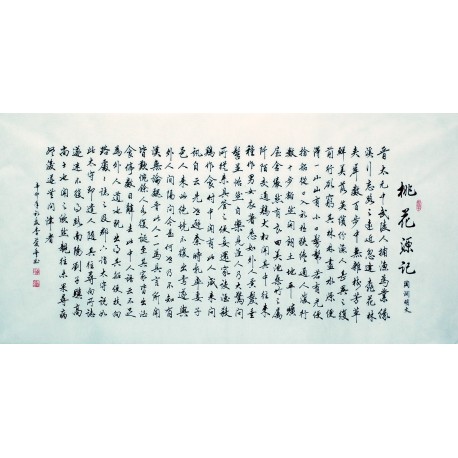 桃花源記
陶淵明文
晉太元中武陵人捕漁為業緣
溪行忘路之遠近忽逢桃花林
夾岸數百步中無雜樹芳草
鮮美落英繽紛漁人甚異之復
前行欲窮其林林盡水源便
得一山山有小口髣髴若有光便
捨船從口入初極狹才通人復行
數十步豁然開朗土地平曠
屋舍儼然有良田美池桑竹之屬
阡陌交通雞犬相聞其中往來
種作男女衣著悉如外人黃髮垂
髫並怡然自樂見漁人乃大驚問
所從來具答之便要還家設酒殺
雞作食村中聞有此人咸來問
訊自云先世避秦時亂率妻子
邑人來此絕境不復出焉遂與
外人間隔問今是何世乃不知有
漢無論魏晉此人一一為具言所聞
皆歎惋餘人各復延至其家皆出酒
食停數日辭去此中人語云不足
為外人道也既出得其船便扶向
路處處誌之及郡下詣太守說如
此太守即遣人隨其往尋向所誌
遂迷不復得路南陽劉子驥高
尚士也聞之欣然規往未果尋病
終後遂無問津者